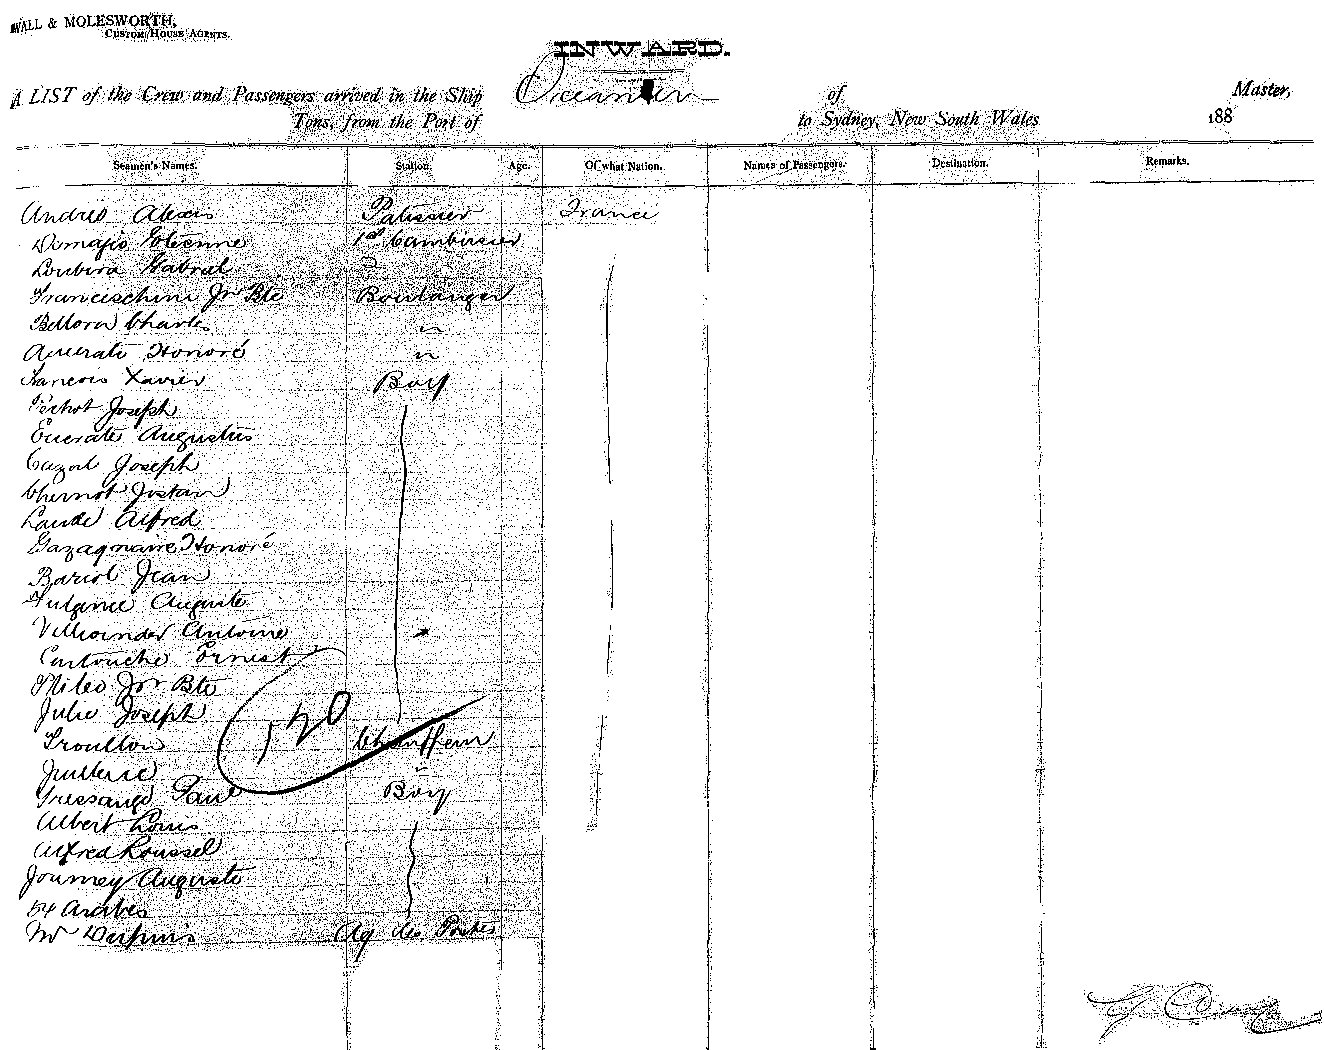 WALL & MOLESWORTH,
CUSTOM HOUSE AGENTS.
INWARD.
A LIST of the Crew and Passengers arrived in the Ship Oceanien of Master,
Tons, from the Port of to Sydney, New South Wales 188
Seamen's Names. Station. Age. Of what Nation. Names of Passengers. Destination. Remarks.
André Alexis Patissier France
Etienne 1er Cambusier
Loubira Gabriel 2
Franceschini Jn Bte Boulanger
Bellora Charles "
Honoré "
Francois Xavier Boy
Pechot Joseph
Eucrate Augustus
Cazol Joseph
Justan
Laude Alfred
Gazagnaire Honoré
Bariol Jean
Fulgence Auguste
Antoine
Cartouche Ernest
Mileo Jn Bte
Julio Joseph
140
Troullon Chauffeur
"
Paul Boy
Albert Louis
Alfred Roussel
Journey Auguste
54 Arabes
Mr Ag des Postes